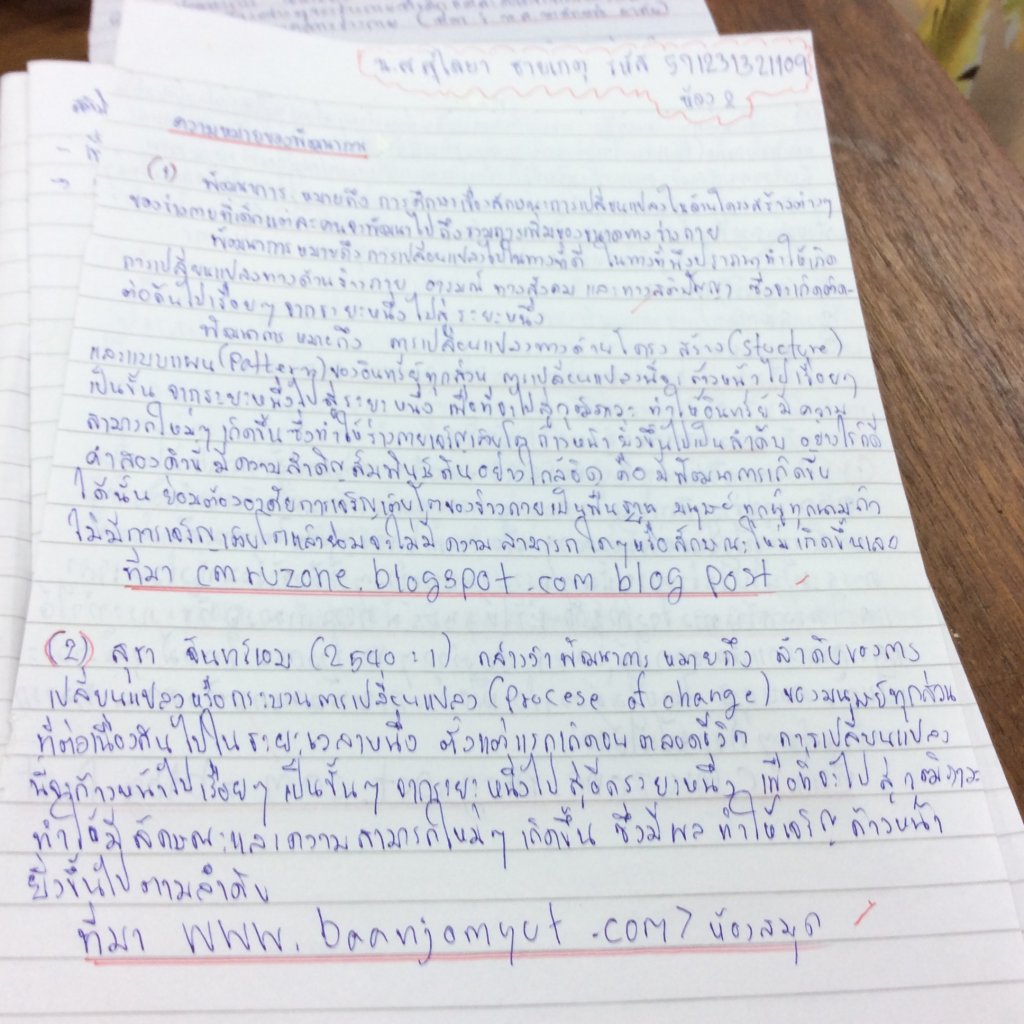 น.ส รหัส 571231321109
ห้อง 2
ความหมายของพัฒนาการ
(1) พัฒนาการ หมายถึง การศึกษาเรื่องลักษณะการเปลี่ยนแปลงในด้านโครงสร้างต่างๆ
ของร่างกายที่เด็กแต่ละคนจะพัฒนาไปถึงรวมการเพิ่มของขนาดทางร่างกาย
พัฒนาการหมายถึงการเปลี่ยนแปลงไปในทางที่ดี ในทางที่พึงปรารถนาทำให้เกิด
การเปลี่ยนแปลงทางด้านร่างกาย อารมณ์ ทางสังคม และทางสติปัญญา ซึ่งจะเกิดติด-
ต่อกันไปเรื่อยๆ จากระยะหนึ่งไปสู่ระยะหนึ่ง
พัฒนาการ หมายถึง การเปลี่ยนแปลงทางด้านโครงสร้าง (Stucture)
และแบบแผน (Pattern) ของอินทรีย์ทุกส่วน การเปลี่ยนแปลงนี้จะก้าวหน้าไปเรื่อยๆ
เป็นขั้น จากระยะหนึ่งไปสู่ระยะหนึ่ง เพื่อที่จะไปสู่วุฒิภาวะ ทำให้อินทรีย์มีความ
สามารถใหม่ๆ เกิดขึ้น ซึ่งทำให้ร่างกายเจริญเติบโต ก้าวหน้ายิ่งขึ้นไปเป็นลำดับ อย่างไรก็ดี
คำสองคำนี้ มีความสำคัญสัมพันธ์กันอย่างใกล้ชิด คือ มีพัฒนาการเกิดขึ้น
ได้นั้น ย่อมต้องอาศัยการเจริญเติบโตของร่างกายเป็นพื้นฐาน มนุษย์ทุกผู้ทุกนามถ้า
ไม่มีการเจริญเติบโตแล้วย่อมจะไม่มีความสามารถใดๆหรือลักษณะใหม่เกิดขึ้นเลย
ที่มา cmruzone.blogspot.com blog post
(2) สุชา จันทร์เอม (2540 : 1) กล่าวว่าพัฒนาการ หมายถึง ลำดับของการ
เปลี่ยนแปลงหรือกระบวนการเปลี่ยนแปลง (Procese of change) ของมนุษย์ทุกส่วน
ที่ต่อเนื่องกันไปในระยะเวลาหนึ่ง ตั้งแต่แรกเกิดจนตลอดชีวิต การเปลี่ยนแปลง
นี้จะก้าวหน้าไปเรื่อยๆ เป็นขั้นๆ จากระยะหนึ่งไปสู่อีกระยะหนึ่ง เพื่อที่จะไปสู่วุฒิภาวะ
ทำให้มีลักษณะและความสามารถใหม่ๆ เกิดขึ้น ซึ่งมีผลทำให้เจริญก้าวหน้า
ยิ่งขึ้นไปตามลำดับ
ที่มา www.baanjomyut.com> ห้องสมุด